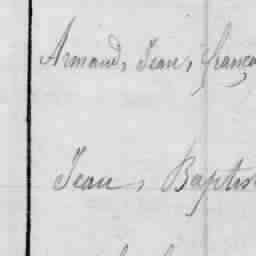 Armand, Jean, franço
Jean, Baptis